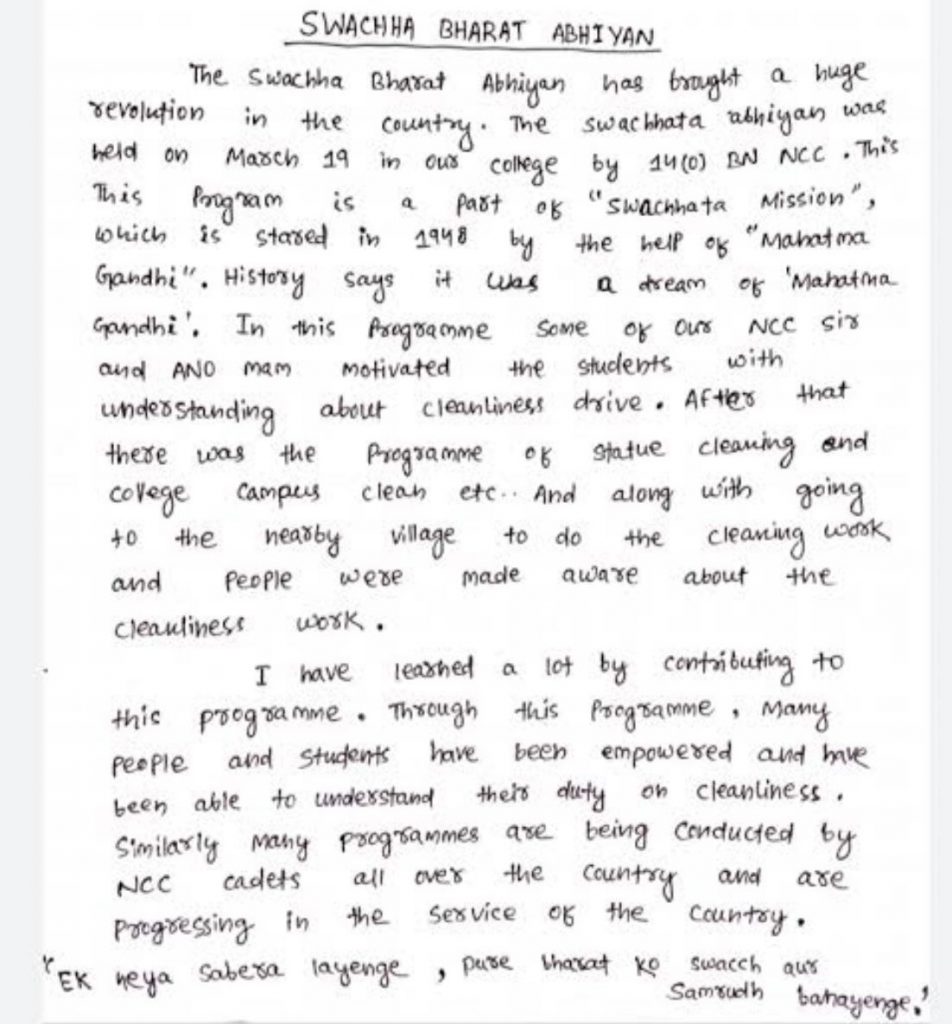 SWACHHA BHARAT ABHIYAN
The Swachha Bharat Abhiyan has brought a huge
revolution in the country. The swachhata abhiyan was
held on March 19 in our college by 14(O) BN NCC. This
This Program is a part of "Swachhata Mission",
which is stared in 1948 by the help of "Mahatma
Gandhi". History says it was a dream of 'Mahatma
Gandhi'. In this Programme some of our NCC sir
and ANO mam motivated the students with
understanding about cleanliness drive. After that
there was the Programme of statue cleaning and
college campus clean etc.. And along with going
to the nearby village to do the cleaning work
and People were made aware about the
cleanliness work.
I have learned a lot by contributing to
this programme. Through this Programme, Many
people and students have been empowered and have
been able to understand their duty on cleanliness.
Similarly Many programmes are being conducted by
NCC cadets all over the country and are
progressing in the service of the country.
"EK neya sabera layenge, pure bharat ko swacch aur
Samrudh banayenge."